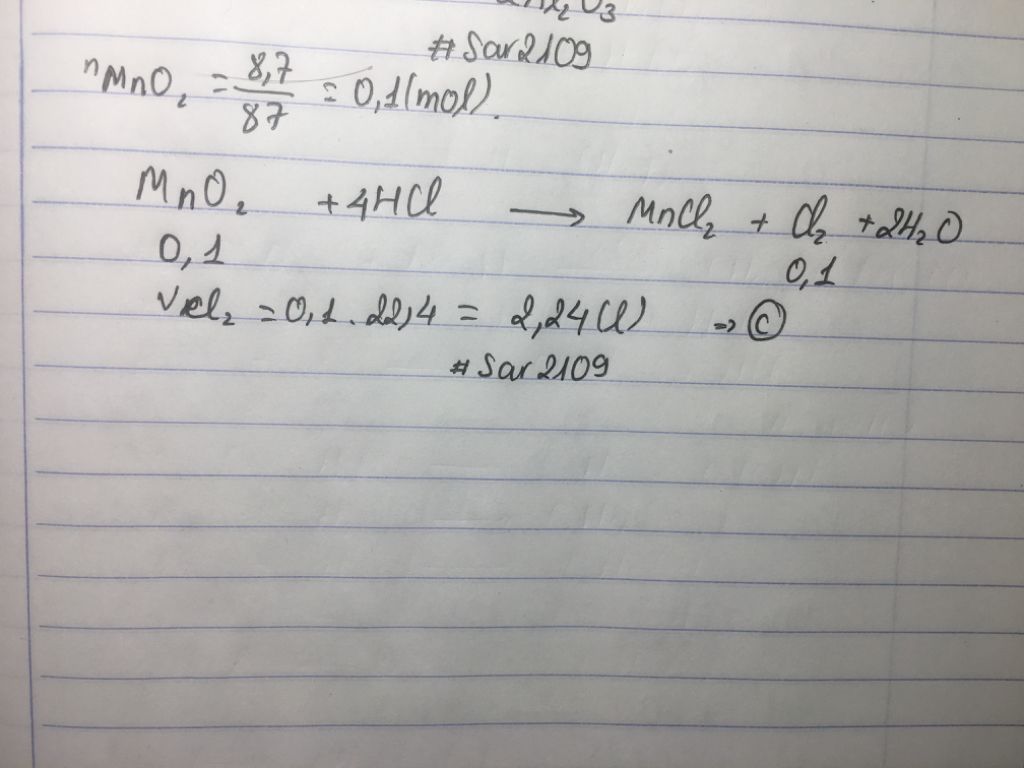 #Sar2109
nMnO₂ = 8,7/87 = 0,1(mol).
MnO₂ + 4HCl ⟶ MnCl₂ + Cl₂ + 2H₂O
0,1 0,1
VCl₂ = 0,1 . 22,4 = 2,24(l) => Ⓒ
#Sar2109